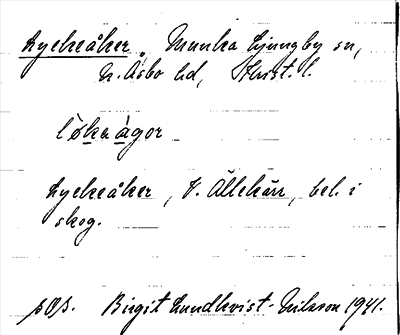 Lyckeåker, Munka Ljungby sn,
N. Åsbo hd, Krist. l.
løkaågor
Lyckeåker, V. Ällekärr, bel. i
skog.
sOs. Birgit Lundkvist-Nilsson 1941.